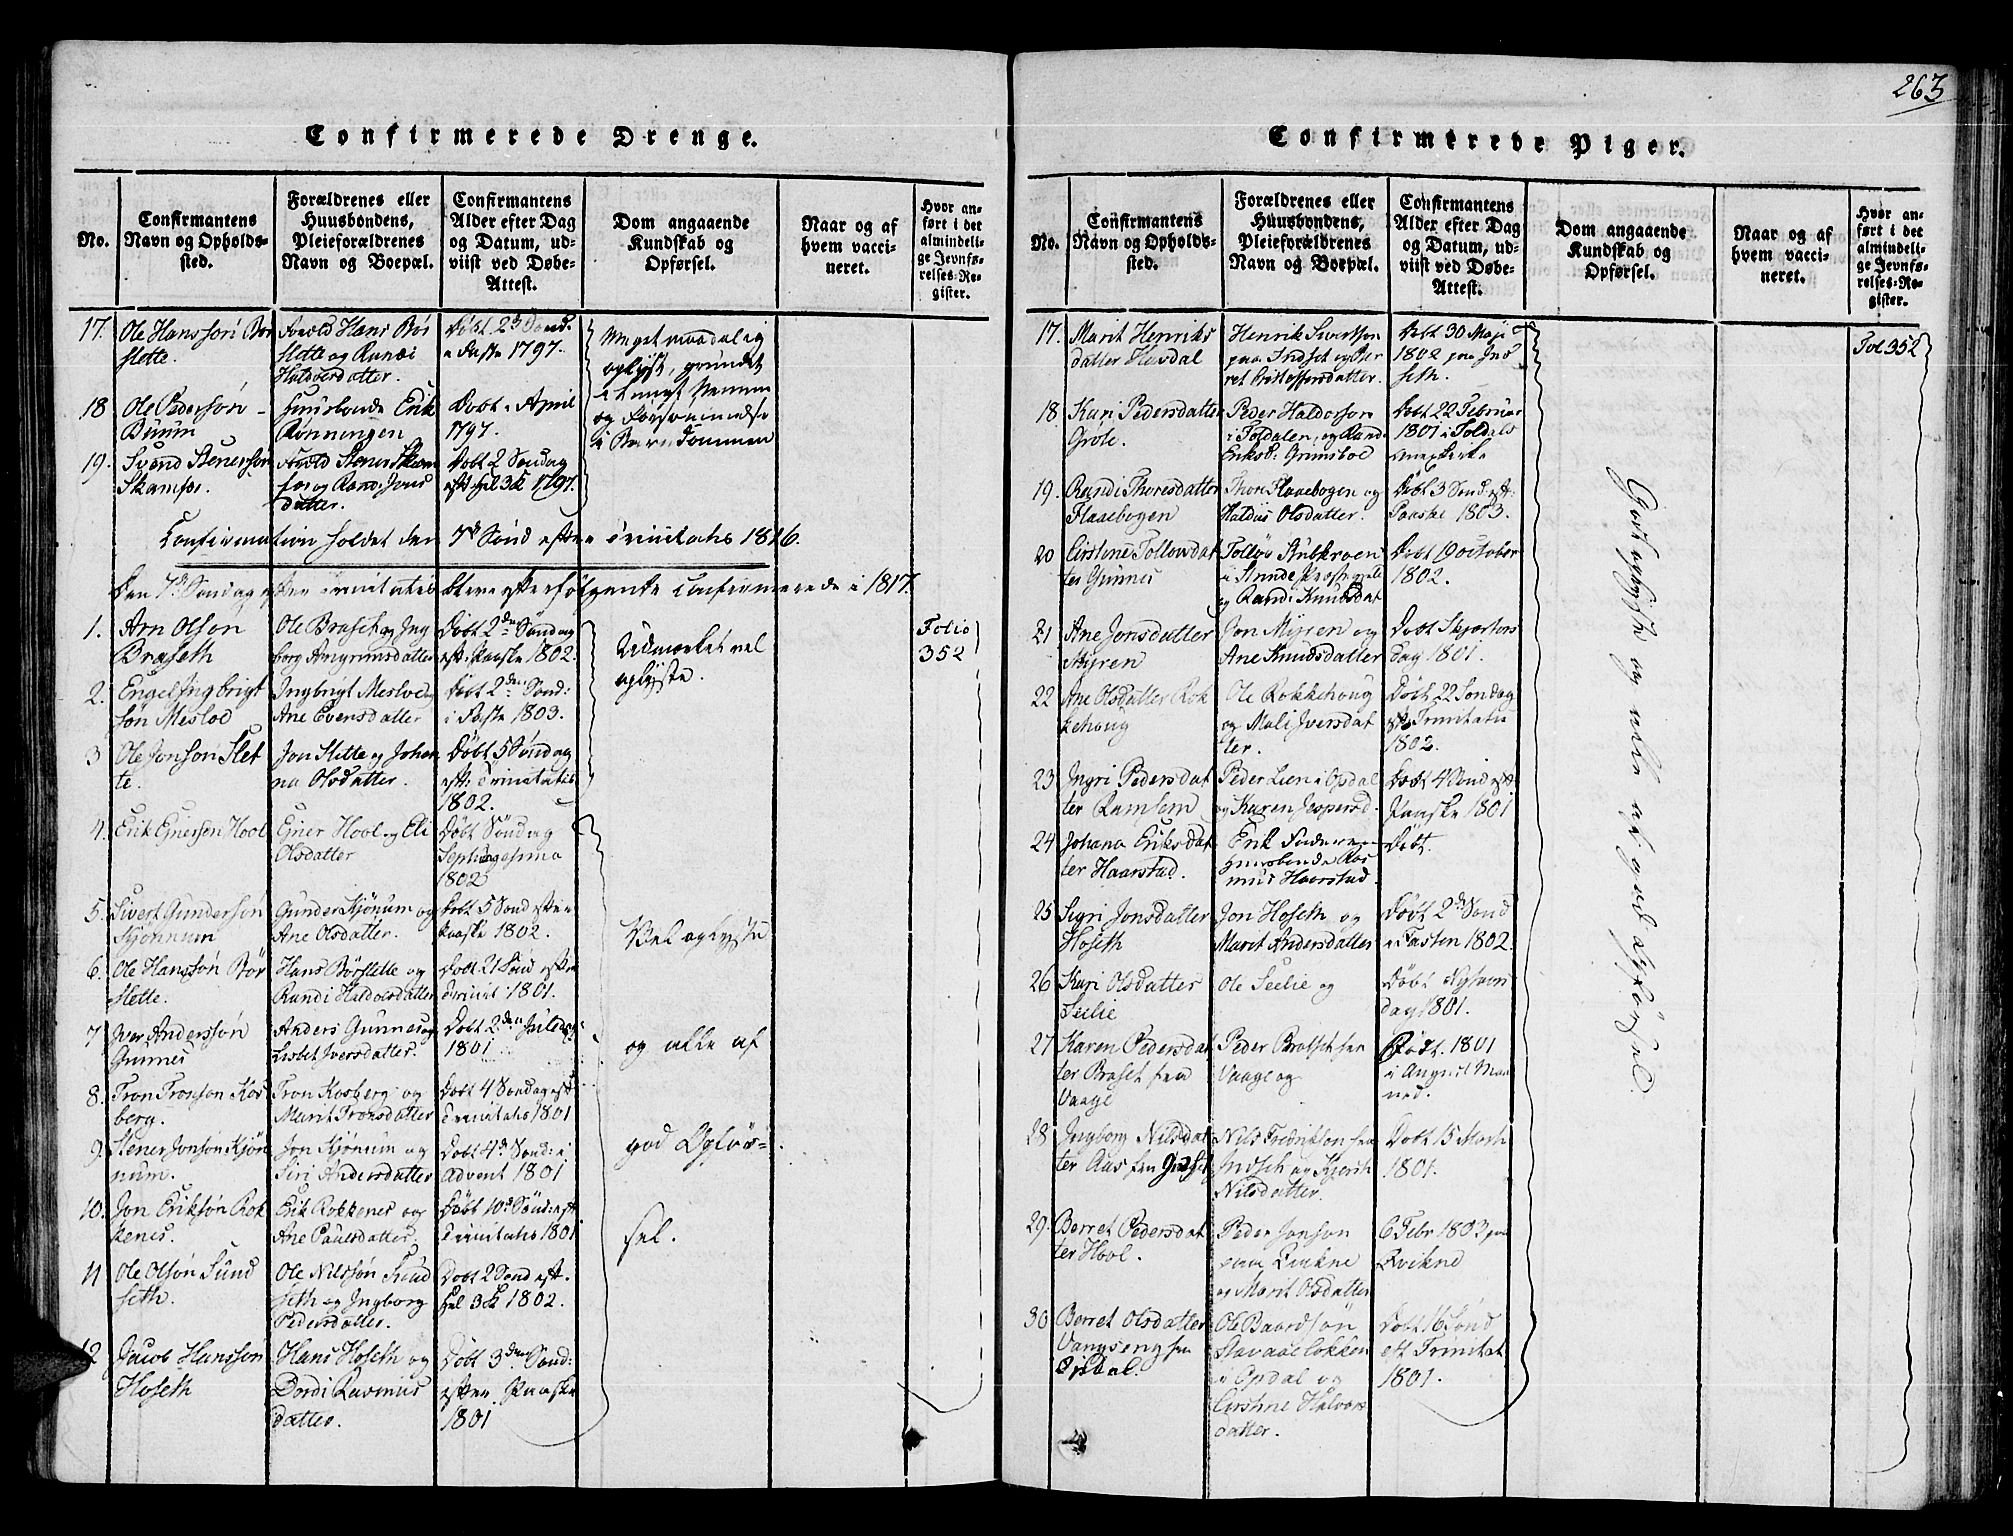 263
Confirmerede Drenge.
No.
Confirmantens
Navn og Opholds-
sted.
Forældrenes eller
Huusbondens,
Pleieforældrenes
Navn og Boepæl.
Confirmantens
Alder efter Dag
og Datum, ud-
viist ved Døbe-
Attest.
Dom angaaende
Kundskab og
Opførsel.
Naar og af
hvem vacci-
neret.
Hvor an-
ført i det
almindeli-
ge Jevnfø-
relses-Re-
gister.
17.
Ole Hanssøn Bør
slette.
Hans Bør
slette og Randi
Haldorsdatter.
Døbt 23 Sønd.
1797.
Meget maadelig
oplyst, grundet
og Forsømmelse
i Barndommen
18
Ole Pedersøn
Buum
Huusbonde Erik
Rønningen
Døbt i April
1797.
19.
Svend Stenersøn
Skamfer.
Stener Skam
fer og Randi Jons
datter.
Døbt 2 Søndag
eft hel 3K 1797.
Confirmation holdet den 7de Sønd efter Trinitatis 1816.
Den 7de Søndag efter Trinitatis bleve efterfølgende Confirmerede i 1817.
1.
Arn Olson
Braseth
Ole Braseth og Ing
borg Arngrimsdatter
Døbt 2den Søndag
eft: Paaske 1802.
Udmærket vel
oplyste.
Folio
352
2.
Engel Ingbrigt
søn Mesloe
Ingbrigt Mesloe og
Ane Evensdatter
Døbt 2den Sønd:
i Faste 1803.
3
Ole Jonsøn Slet
te.
Jon Slette og Johan
na Olsdatter.
Døbt 5 Søndag
eft: Trinitatis
1802.
4.
Erik Ejnersøn Hool
Ejner Hool og Eli
Olsdatter
Døbt Søndag
Septuagesima
1802
5.
Sivert Gundersøn
Skjønnum
Gunder Skjønum og
Ane Olsdatter.
Døbt 5 Sønd efter
Paaske 1802.
Vel oplyste
6.
Ole Hanssøn Bør
slette.
Hans Børslette og
Randi Haldorsdatter
Døbt 21 Sønd efter
Trinit 1801.
7.
Iver Anderssøn
Gunnes
Anders Gunnes og
Lisbet Iversdatter.
Døbt 2den Juledag
1801
og alle af
8.
Tron Tronsøn Kos
berg.
Tron Kosberg og
Marit Tronsdatter
Døbt 4 Søndag eft
Trinitatis 1801
9.
Stener Jonsøn Kjøn
num.
Jon Kjønum og
Siri Andersdatter
Døbt 4de Sønd: i
Advent 1801
god Opfør-
10.
Jon Eriksøn Rok
kenes.
Erik Rokkenes og
Ane Paulsdatter.
Døbt 10de Sønd: eft
Trinitatis 1801
sel.
11
Ole Olsøn Sund
seth.
Ole Nilssøn Sund
seth og Ingborg
Pedersdatter.
Døbt 2 Sønd eft.
hel 3K 1802.
12
Jacob Hanssøn
Hoseth
Hans Hoseth og
Dordi Rasmus
datter.
Døbt 3den Sønd:
efter Paaske
1801
Confirmerede Piger.
No.
Confirmantens
Navn og Opholds-
sted.
Forældrenes eller
Huusbondens,
Pleieforældrenes
Navn og Boepæl.
Confirmantens
Alder efter Dag
og Datum, ud-
viist ved Døbe-
Attest.
Dom angaaende
Kundskab og
Opførsel.
Naar og af
hvem vacci-
neret.
Hvor an-
ført i det
almindeli-
ge Jevnfø-
relses-Re-
gister.
17.
Marit Henriks
datter Hevdal
Henrik Sivertsøn
paa Indset og Ber
ret Cristoffersdatter.
Døbt 30 Maji
1802 paa Ind
seth.
Fol 352
18.
Kari Pedersdatter
Grøte.
Peder Haldorsøn
i Foldalen, og Rand
Eriksd: Grimsboe
Døbt 22 Februar
1801 i Foldals
Anexkirke
19.
Randi Thoresdatter
Flaaebogen
Thore Flaaebogen og
Haldis Olsdatter.
Døbt 3 Sønd. eft:
Paaske 1803.
20
Cirstine Tollowdat
ter Gunnes
i Strinde Præstegield
og Randi Knudsdat
Døbt 19 October
1802.
21
Ane Jonsdatter
Myren
Jon Myren og
Ane Knudsdatter
Døbt Skjærtors
dag 1801.
22
Ane Olsdatter Rok
kehoug
Ole Rokkehoug
og Mali Iversdat
ter.
Døbt 22 Søndag
eft Trinitatis
1802.
23
Ingri Pedersdat
ter Ramsem
Peder Lien i Opdal
og Karen Jespersd.
Døbt 4 Sønd eft
Paaske 1801
24
Johana Eriksdat
ter Haarstad.
Erik
Huusbonde Ras
mus Haarstad.
Døbt.
25
Sigri Jonsdatter
Hoseth
Jon Hoseth og
Marit Andersdatter
Døbt 2de Sønd
i Fasten 1802.
26
Kari Olsdatter
Seelie
Ole Seelie og
Døbt Nytaars
dag 1801.
27
Karen Pedersdat
ter Braset fra
Vaage
Peder Braset fra
Vaage og
Født. 1801
i August Maa
ned.
28
Ingborg Nilsdat
ter Aas fra Indset
Nils Fredriksøn fra
Indseth og Kjersti
Nilsdatter.
Døbt 15 Marts
1801.
29.
Berret Pedersdat
ter Hool.
Peder Jonsøn
paa Qvikne
og Marit Olsdatter
6 Febr 1803 paa
Qvikne
30
Berret Olsdatter
Vangseng fra
Opdal.
Ole Baardsøn
Stavaaeløkken
i Opdal og
Cirstine Halvors
datter.
Døbt 16 Sønd
eft Trinitat
1801.
Godt oplyste og alle af god Opførsel.